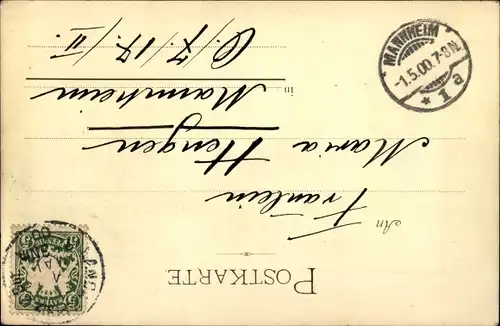 POSTKARTE.
An Fräulein
Maria Hengen
in Mannheim
Q./7./17./II.
MANNHEIM
-1.5.00.7-8N.
* 1 a